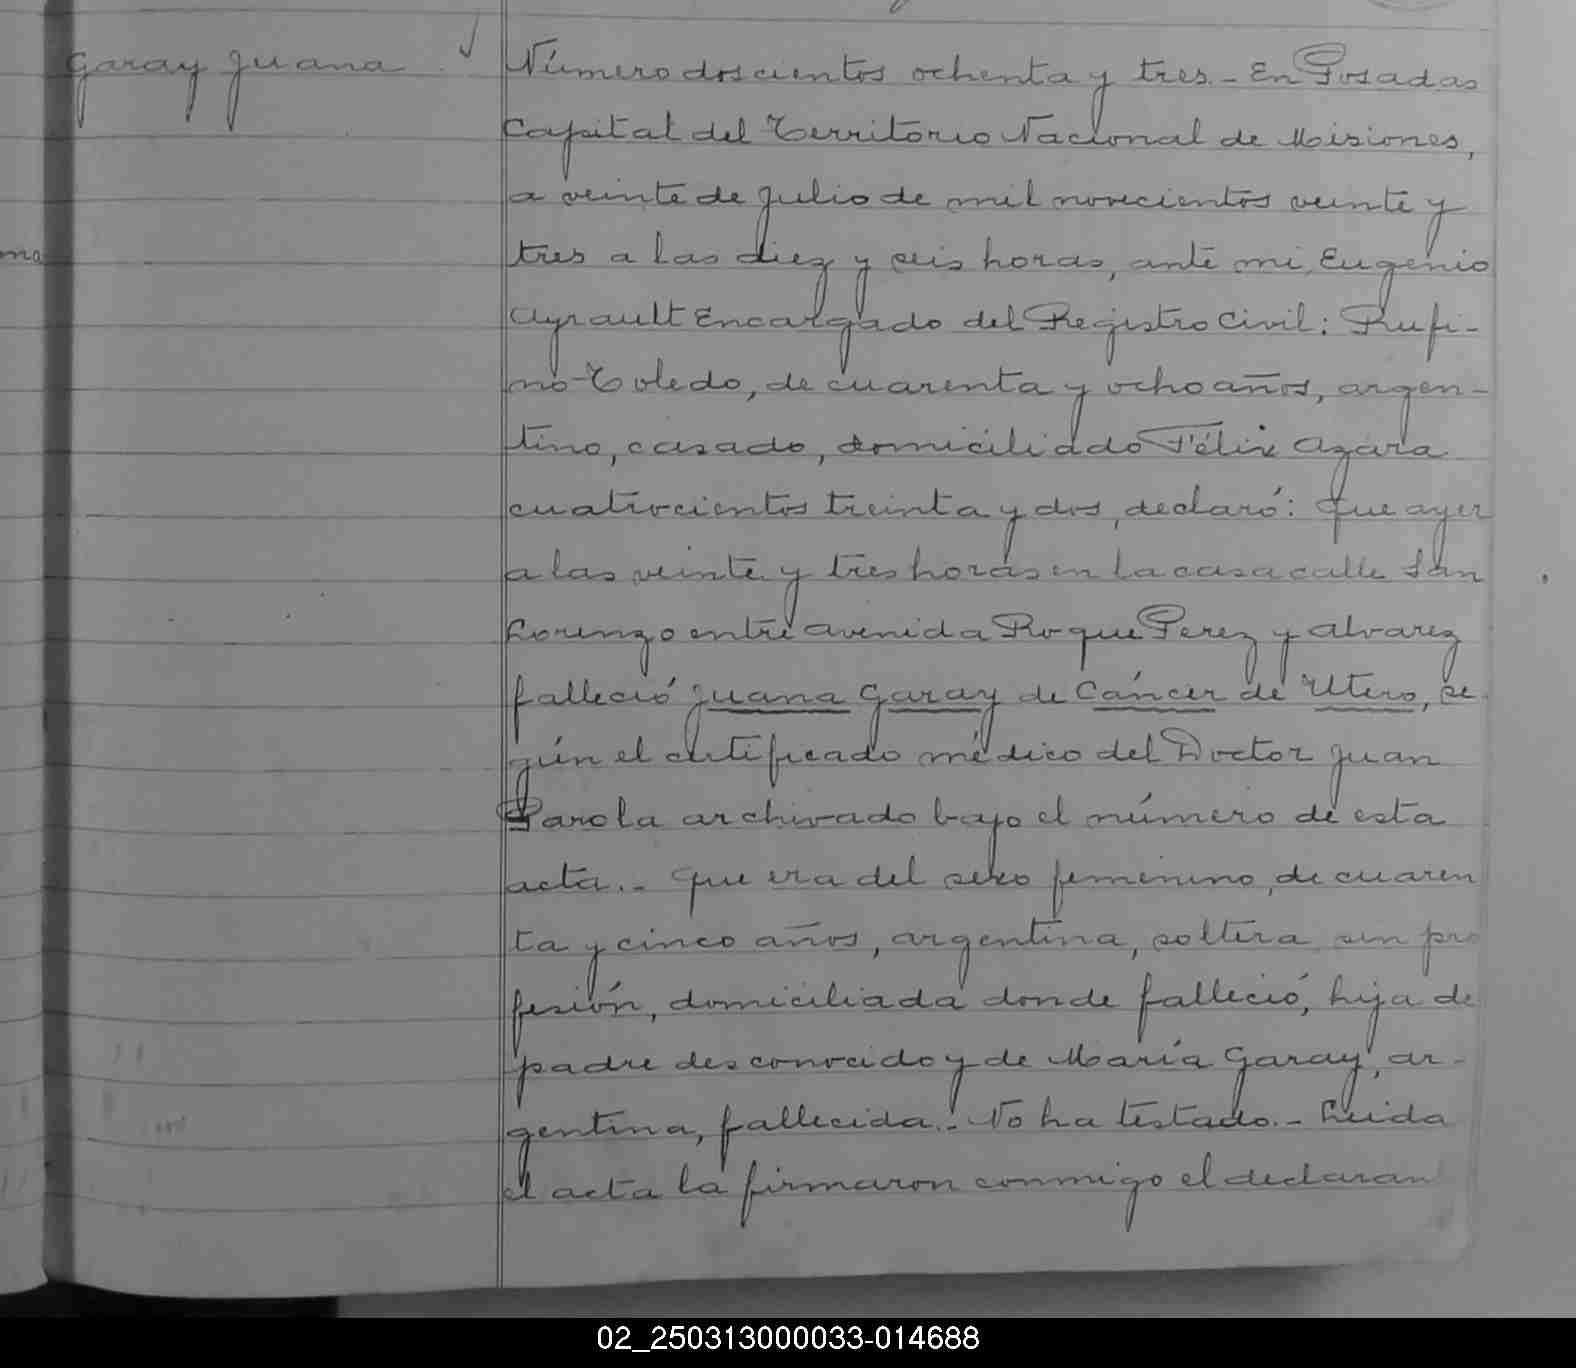 Garay Juana
Número doscientos ochenta y tres.- En Posadas
Capital del Territorio Nacional de Misiones,
a veinte de Julio de mil novecientos veinte y
tres a las diez y seis horas, ante mi, Eugenio
Ayrault Encargado del Registro Civil: Rufi-
no Toledo, de cuarenta y ocho años, argen-
tino, casado, domiciliado Félix Azara
cuatrocientos treinta y dos, declaró: Que ayer
a las veinte y tres horas en la casa calle San
Lorenzo entre avenida Roque Perez y Alvarez
falleció Juana Garay de Cáncer de Utero, se
gún el certificado médico del Doctor Juan
Parola archivado bajo el número de esta
acta.- Que era del sexo femenino, de cuaren
ta y cinco años, argentina, soltera, sin pro
fesión, domiciliada donde falleció, hija de
padre desconocido y de María Garay, ar-
gentina, fallecida.- No ha testado.- Leida
el acta la firmaron conmigo el declaran
02_250313000033-014688